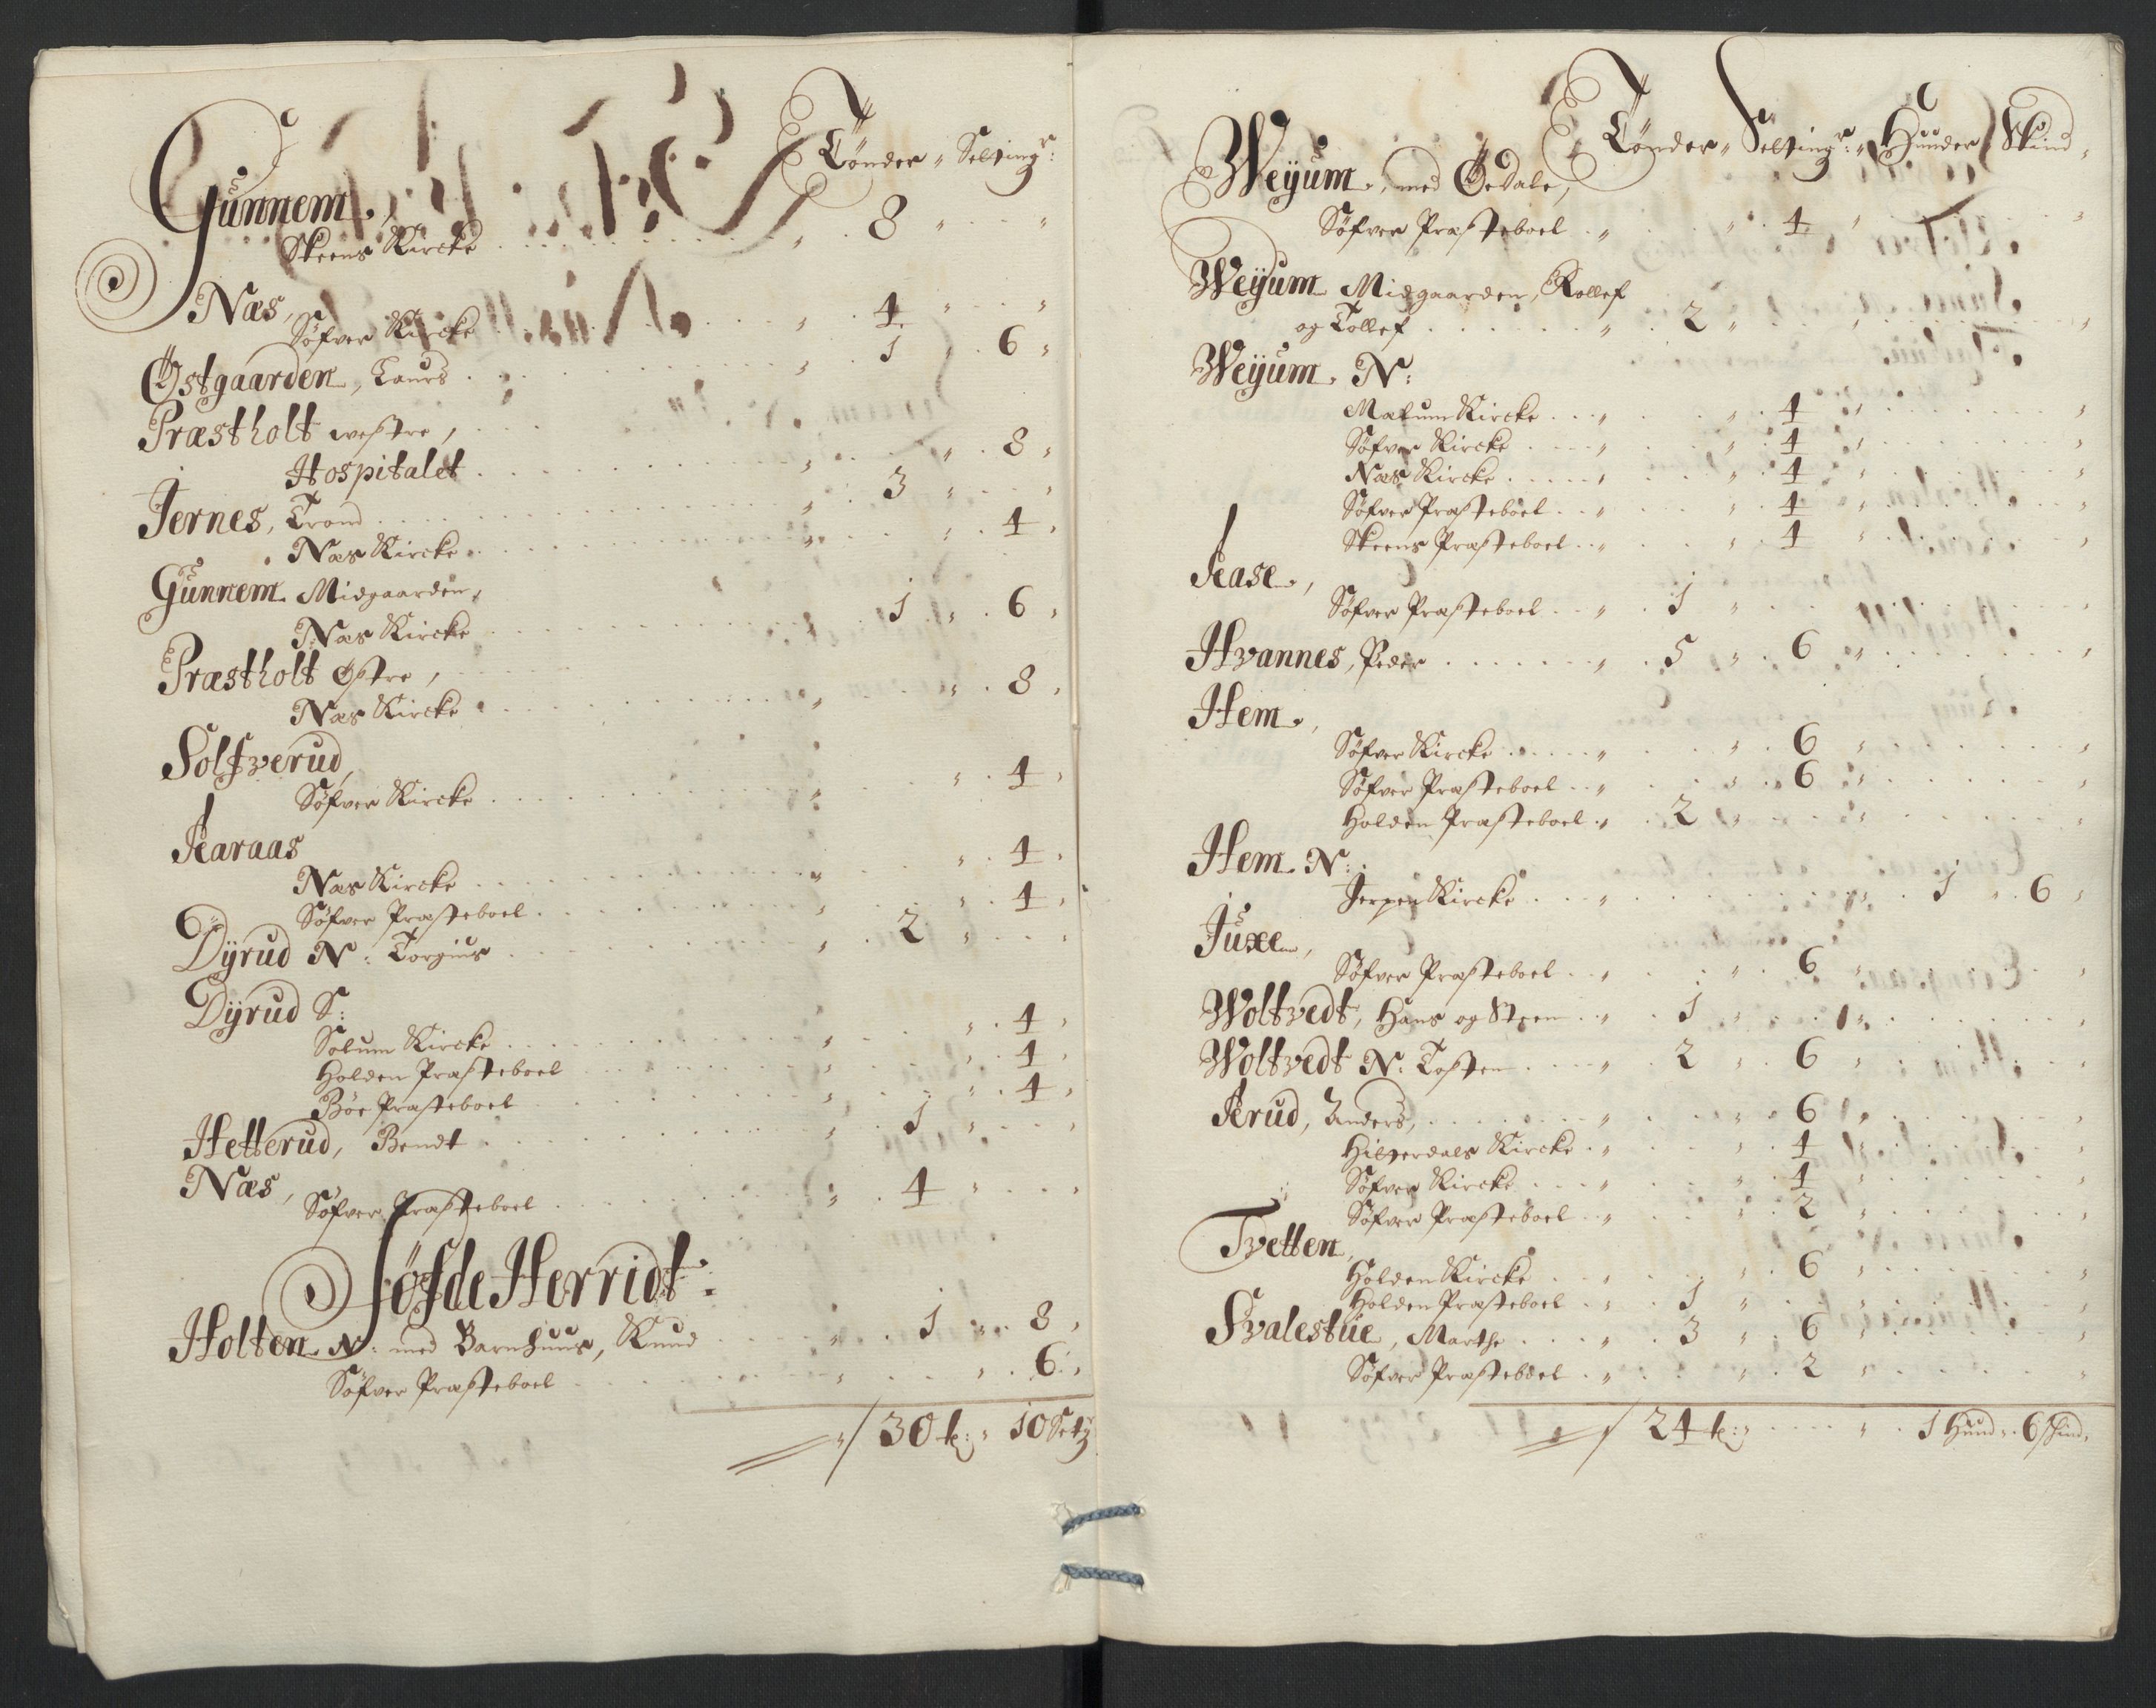 Tønder " Setting:
Gunnem,
Skeens Kircke . . . " . 8 " . . "
Næs,
Søfver Kircke . . . " . 4 " . . "
Østgaarden, Laurs . . . " . 1 " . 6 "
Præstholt westre,
Hospitalet . . . " . . . " . 8 "
Jernes, Trond . . . " . 3 " . . "
Næs Kircke . . . " . . . " . 4 "
Gunnem Midgaarden,
Næs Kircke . . . " . 1 " . 6 "
Præstholt Østre,
Næs Kircke . . . " . . . " . 8 "
Solfverud,
Søfver Kircke . . . " . . . " . 4 "
Aaraas
Næs Kircke . . . " . . . " . 4 "
Søfver Præsteboel . . . " . . . " . 4 "
Dÿrud N: Torgius . . . " . 2 " . . "
Dÿrud S:
Solum Kircke . . . " . . . " . 4 "
Holden Præsteboel . . . " . . . " . 4 "
Bøe Præsteboel . . . " . . . " . 4 "
Hetterud, Bendt . . . " . 1 " . . "
Næs,
Søfver Præsteboel . . . " . 4 " . . "
Søfde Herridt:
Holten N: med Barnhuus, Knud . . . " . 1 " . 8 "
Søfver Præsteboel . . . " . . . " . 6 "
30 t: " 10 Setg
Tønder " Setting: " Huuder Skind "
Weÿum, med Ødale,
Søfver Præsteboel . " . . . " . 4 " . . "
Weÿum Midgaarden, Rollef
og Tollef . . . " . 2 " . . . " . . "
Weÿum N:
Mælum Kircke . . " . . " . 4 " . . "
Søfver Kircke . . " . . " . 4 " . . "
Næs Kircke . . " . . " . 4 " . . "
Søfver Præsteboel . . " . . " . 4 " . . "
Skeens Præsteboel . . " . . " . 4 " . . "
Aase,
Søfver Præsteboel . . " . 1 " . . . "
Hvannes, Peder . . . " . 5 " . 6 " . . "
Hem,
Søfver Kircke . . . " . . " . 6 " . . "
Søfver Præsteboel . . " . . " . 6 " . . "
Holden Præsteboel . " . 2 " . . " . . "
Hem N:
Jerpen Kircke . . " . . . " . 1 " . 6 "
Juxe,
Søfver Præsteboel . . " . . " . 6 " . . "
Woltvedt, Hans og Steen . . " . 1 " . . " . . "
Woltvedt N: Tosten . . " . 2 " . 6 " . . "
Aerud, Anders, . . . " . . " . 6 " . . "
Hitterdals Kircke . " . . " . 4 " . . "
Søfver Kircke . . " . . " . 4 " . . "
Søfver Præsteboel . . " . . " . 2 " . . "
Tvetten,
Holden Kircke . . " . . " . 6 " . . "
Holden Præsteboel . " . 1 " . . " . . "
Svalestue, Marthe . . . " . 3 " . 6 " . . "
Søfver Præsteboel . " . . " . 2 " . . "
24 t: " . . . " . 1 Huud " . 6 skind "